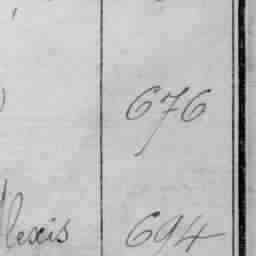 676
Alexis 694